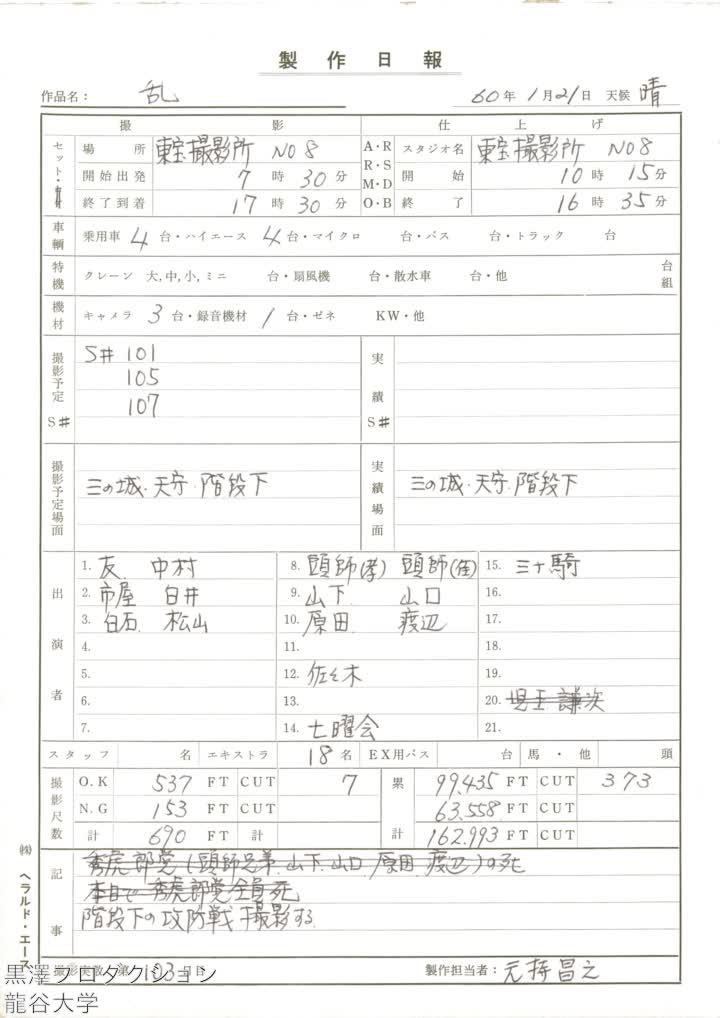 製作日報
作品名： 乱 60年1月21日 天候 晴
撮影 仕上げ
セット・ 場所 東宝撮影所 NO8 A・R R・S M・D O・B スタジオ名 東宝撮影所 NO8
開始出発 7時30分 開始 10時15分
終了到着 17時30分 終了 16時35分
車輌 乗用車 4台・ハイエース 4台・マイクロ 台・バス 台・トラック 台
特機 クレーン 大,中,小,ミニ 台・扇風機 台・散水車 台・他 台組
機材 キャメラ 3台・録音機材 1台・ゼネ KW・他
撮影予定 S# S# 101 実績 S#
105
107
撮影予定場面 三の城・天守・階段下 実績場面 三の城・天守・階段下
出演者 1. 友 中村 8. 頭師(孝) 頭師(佳) 15. 三十騎
2. 市屋 臼井 9. 山下 山口 16.
3. 白石 松山 10. 原田 渡辺 17.
4. 11. 18.
5. 12. 佐々木 19.
6. 13. 20. 児玉 謙次
7. 14. 七曜会 21.
スタッフ 名 エキストラ 18名 EX用バス 台 馬・他 頭
撮影尺数 O.K 537 FT CUT 7 累計 99.435 FT CUT 373
N.G 153 FT 63.558 FT CUT
計 690 FT 計 162.993 FT CUT
記事 秀虎郎党(頭師兄弟.山下.山口.原田.渡辺)の死
本日で 秀虎郎党全員死
階段下の攻防戦 撮影する
撮影実数 第103日目 製作担当者： 元持昌之
㈱ヘラルド・エース
黒澤プロダクション
龍谷大学